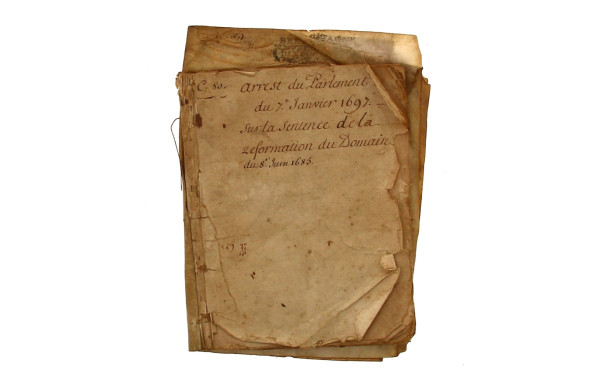 C. 80.
Arrest du Parlement
du 7e. Janvier 1697.
Sur la Sentence de la
Reformation du Domain
du 8e. Juin 1685.